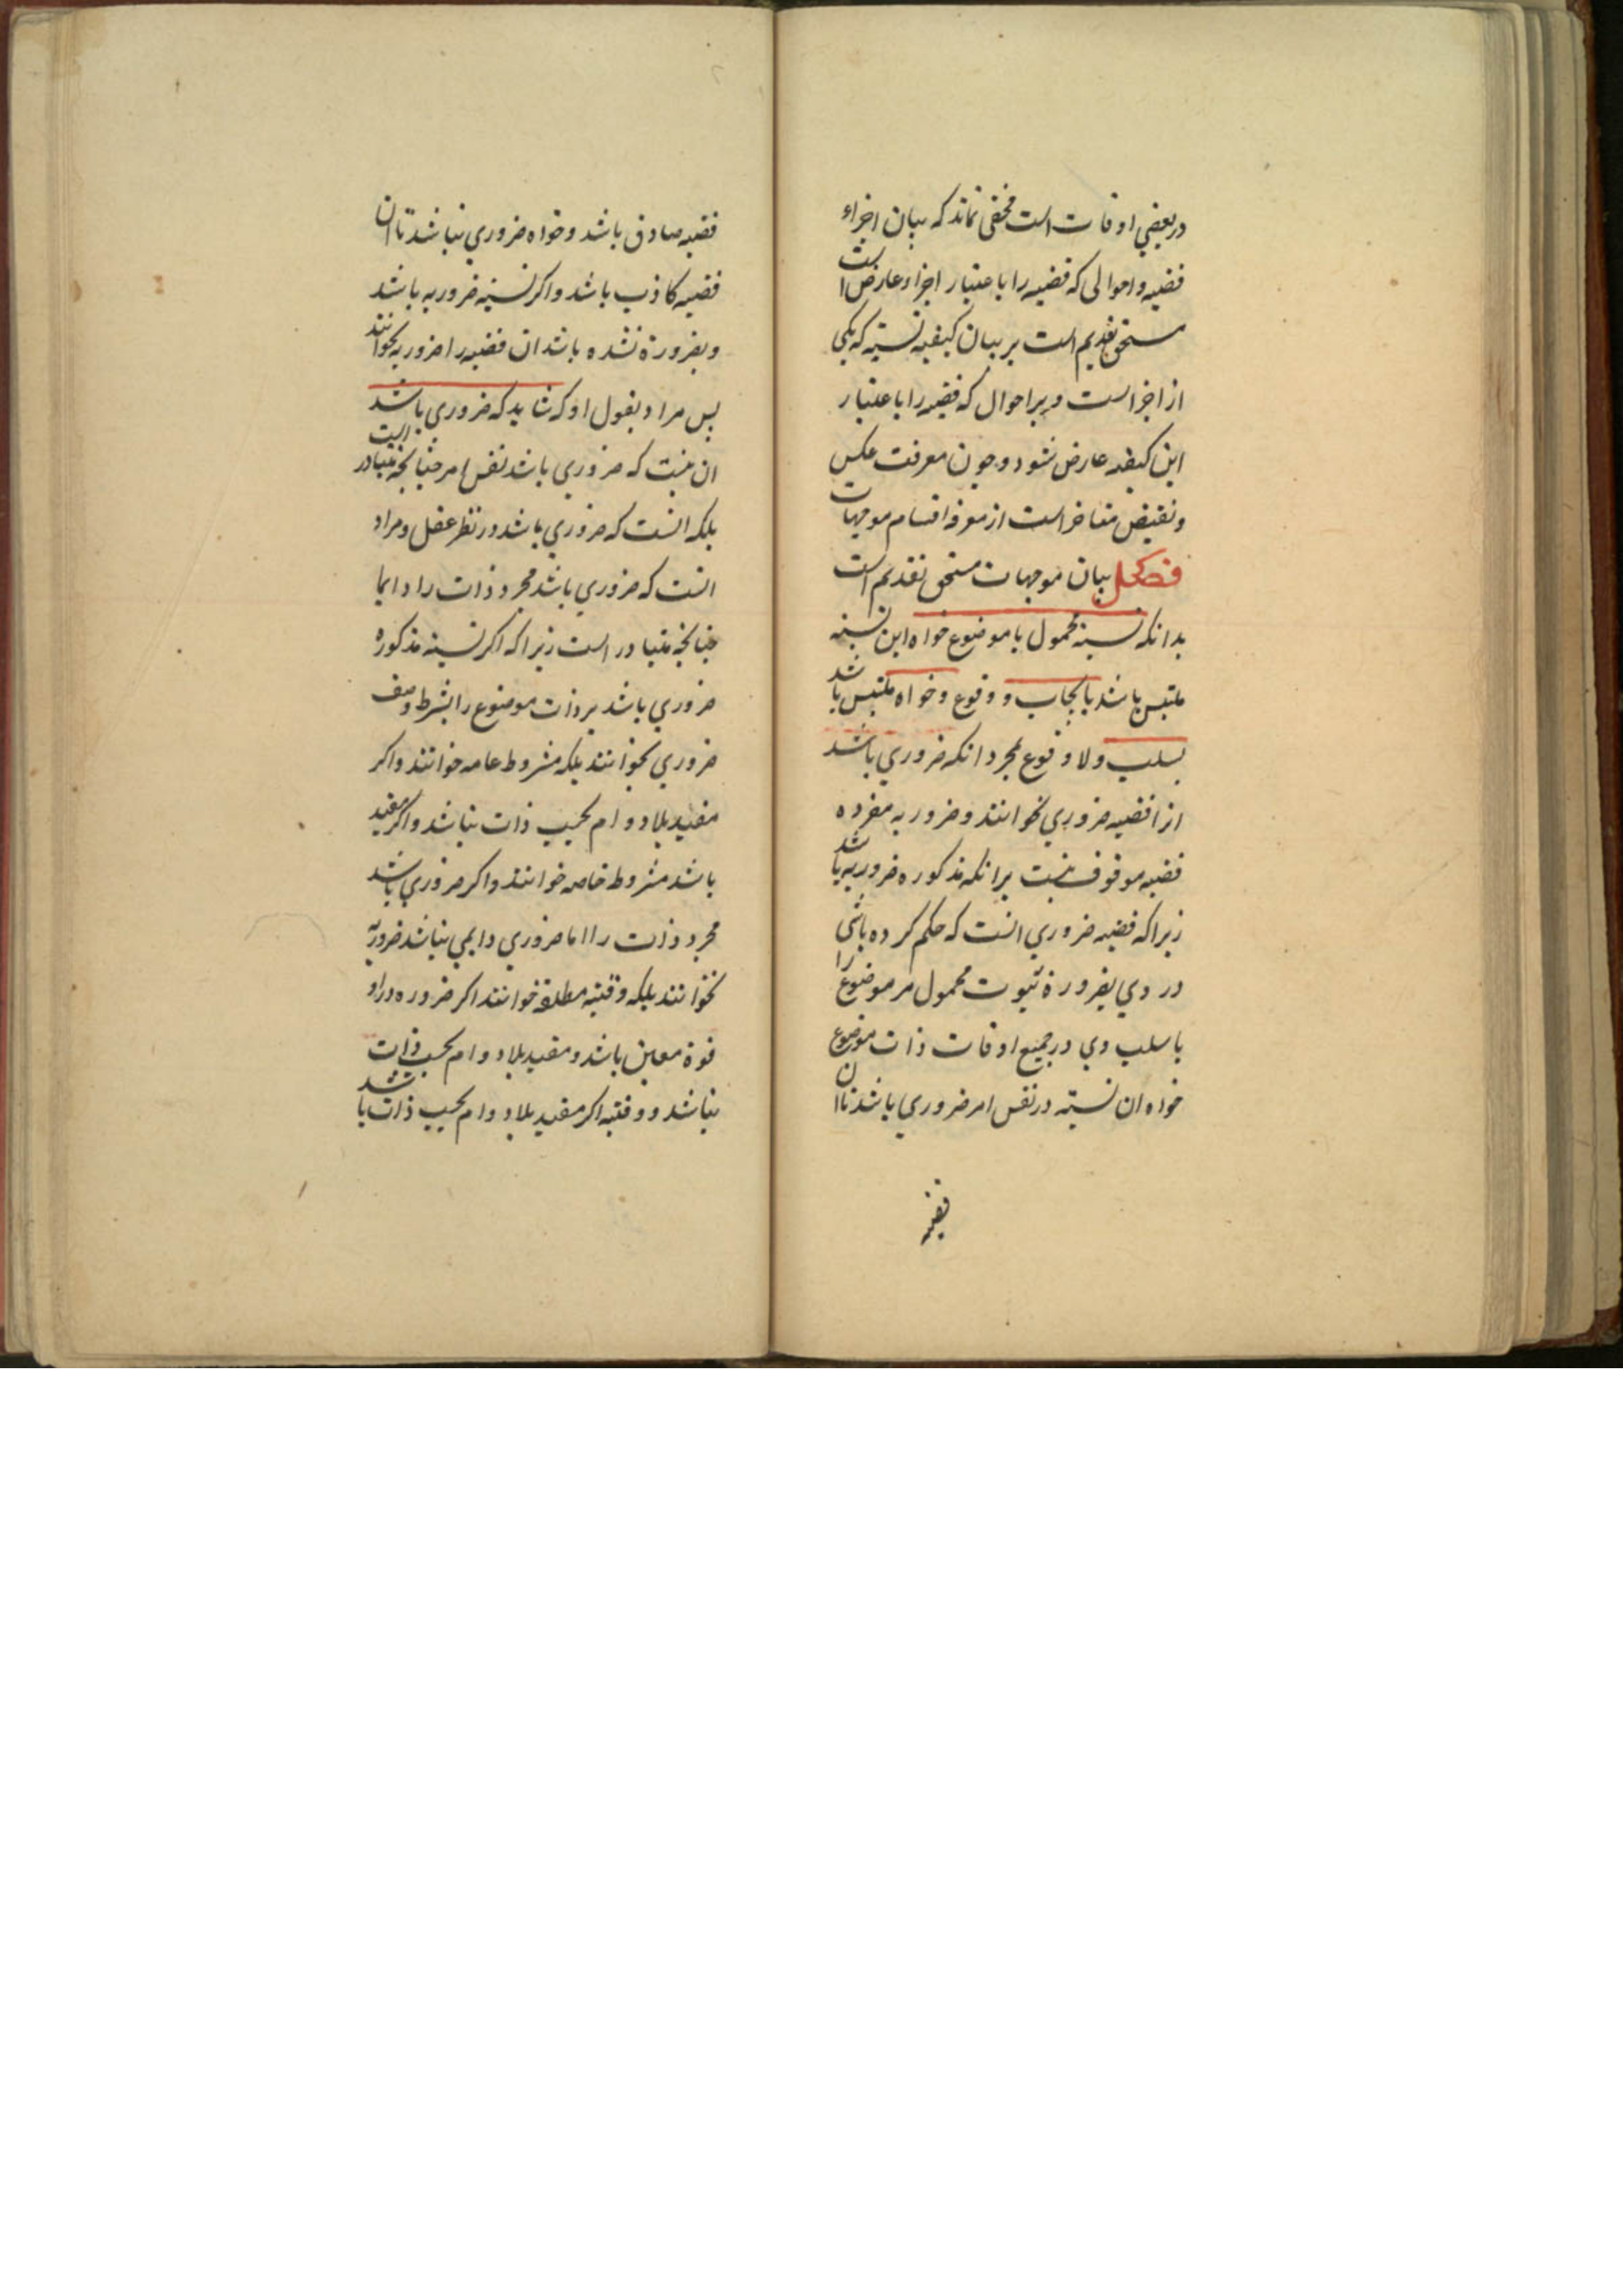 در بعضی اوقات است مخفی نماند که بیان اجزاء
قضیه و احوالی که قضیه را باعتبار اجزاء عارض است
مستحق تقدیم است بر بیان کیفیه نسبته که یکی
از اجزاست و بر احوال که قضیه را باعتبار
این کیفیه عارض شود و چون معرفت عکس
و نقیض متاخر است از معرفه اقسام موجهات
فصل بیان موجهات مستحق تقدیم است
بدانکه نسبته محمول با موضوع خواه این نسبته
ملتبس باشد بایجاب و وقوع و خواه ملتبس باشد
بسلب و لا وقوع مجرد انکه ضروری باشد
انرا قضیه ضروری نخوانند و ضروریه مفرده
قضیه موقوف نیست برانکه مذکوره ضروریه باشد
زیرا که قضیه ضروری انست که حکم کرده باشی
در وی بضرورة ثبوت محمول مر موضوع را
یا سلب وی در جمیع اوقات ذات موضوع
خواه ان نسبته در نفس امر ضروری باشد تا ان
قضیه
قضیه صادق باشد و خواه ضروری نباشد تا ان
قضیه کاذب باشد و اکر نسبته ضروریه باشد
و بضرورة نشده باشد ان قضیه را ضروریه نخوانند
پس مراد بقول او که شاید که ضروری باشد
ان نیست که ضروری باشد نفس امر چنانچه متبادر است
بلکه انست که ضروری باشد در نظر عقل و مراد
انست که ضروری باشد مجرد ذات را دایما
چنانچه متبادر است زیرا که اکر نسبته مذکوره
ضروری باشد بر ذات موضوع را بشرط وصف
ضروری نخوانند بلکه مشروط عامه خوانند و اکر
مقید بلادوام بحسب ذات نباشد و اکر مقید
باشد مشروط خاصه خوانند و اکر ضروری باشد
مجرد ذات را اما ضروری دایمی نباشد ضروریه
نخوانند بلکه وقتیه مطلقه خوانند اکر ضروره در
معین باشد و مقید بلادوام بحسب ذات
نباشد و وقتیه اکر مقید بلادوام بحسب ذات باشد